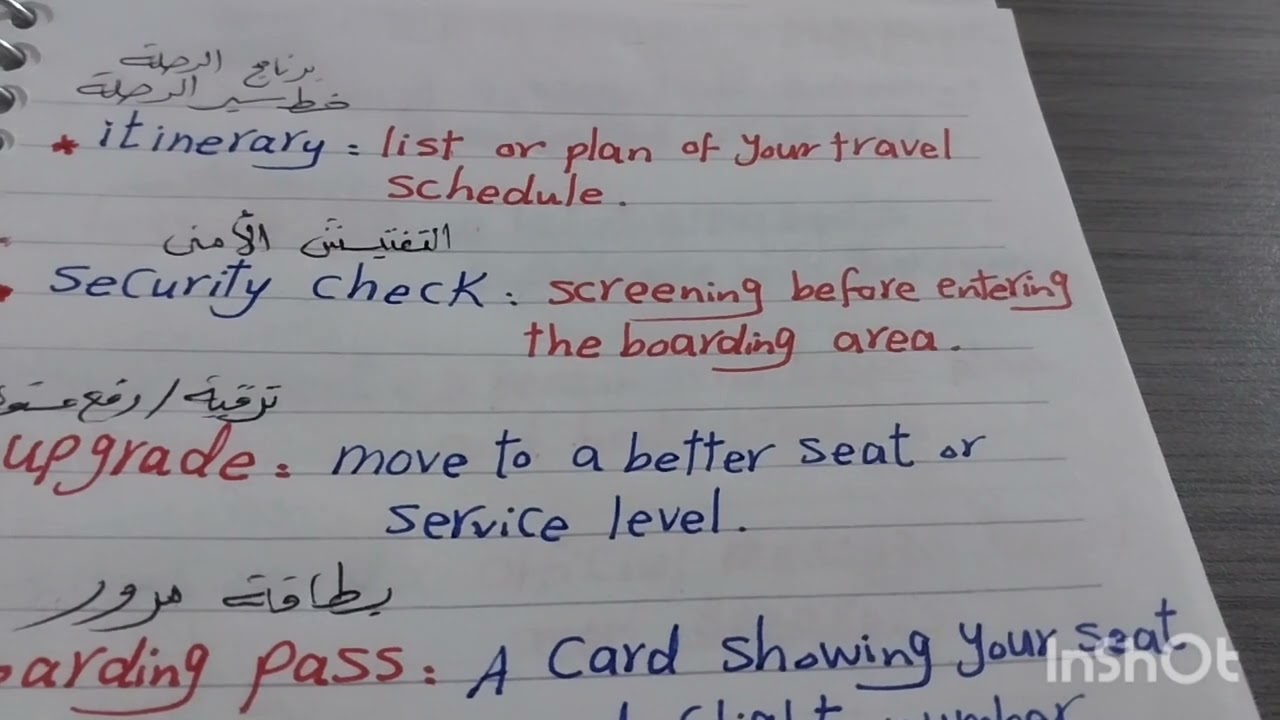 برنامج الرحلة
خط سير الرحلة
* itinerary : list or plan of your travel
schedule.
التفتيش الأمني
Security check : screening before entering
the boarding area.
ترقية / رفع
upgrade : move to a better seat or
service level.
بطاقة مرور
arding pass : A Card showing your seat
flight number
InShOt